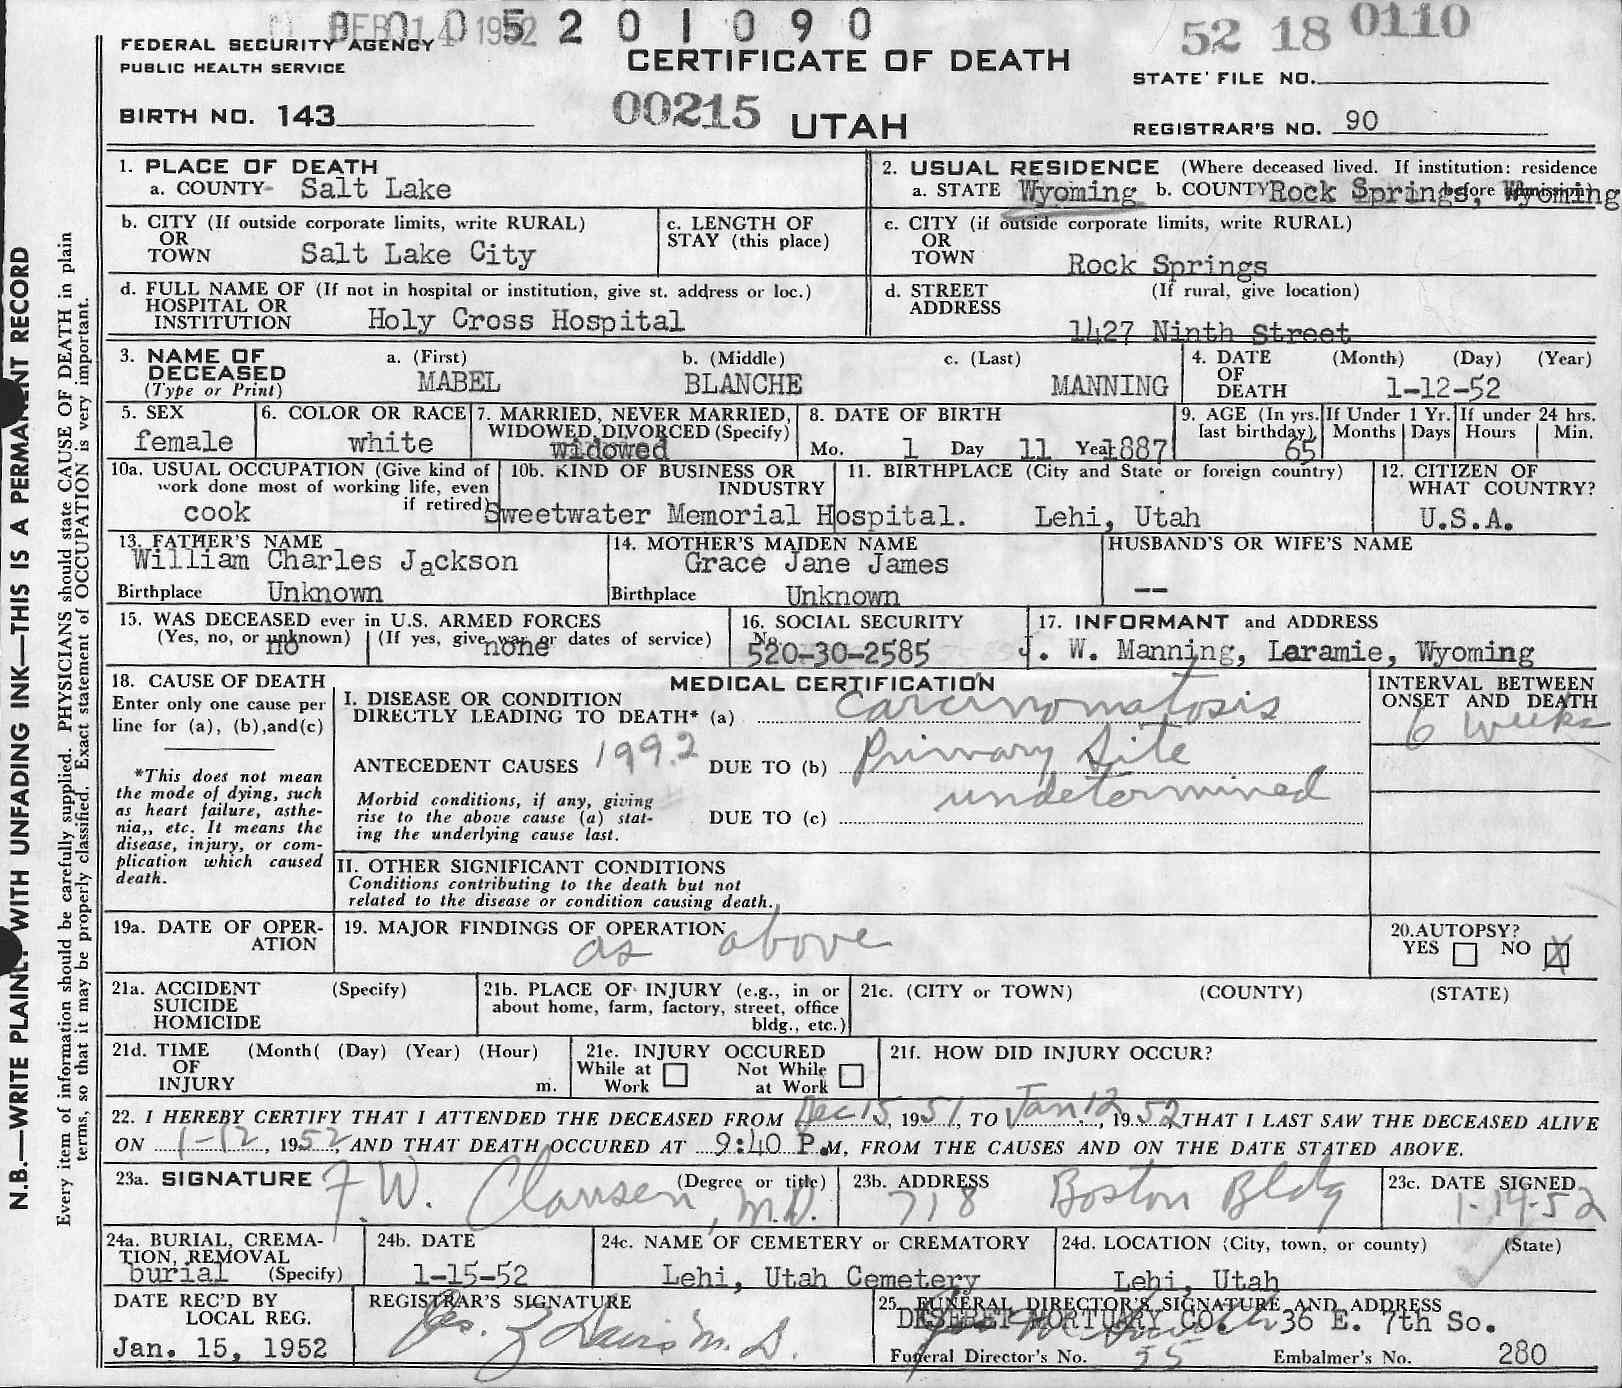 FEB 14 1952
0 0 0 5 2 0 1 0 9 0
52 18 0110
FEDERAL SECURITY AGENCY
PUBLIC HEALTH SERVICE
CERTIFICATE OF DEATH
STATE FILE NO.
BIRTH NO. 143
00215 UTAH
REGISTRAR'S NO. 90
1. PLACE OF DEATH
a. COUNTY Salt Lake
2. USUAL RESIDENCE (Where deceased lived. If institution: residence before admission)
a. STATE Wyoming b. COUNTY Rock Springs, Wyoming
b. CITY (If outside corporate limits, write RURAL)
OR
TOWN Salt Lake City
c. LENGTH OF
STAY (this place)
c. CITY (if outside corporate limits, write RURAL)
OR
TOWN Rock Springs
d. FULL NAME OF (If not in hospital or institution, give st. address or loc.)
HOSPITAL OR
INSTITUTION Holy Cross Hospital
d. STREET (If rural, give location)
ADDRESS
1427 Ninth Street
3. NAME OF
DECEASED
(Type or Print)
a. (First) b. (Middle) c. (Last)
MABEL BLANCHE MANNING
4. DATE (Month) (Day) (Year)
OF
DEATH 1-12-52
5. SEX
female
6. COLOR OR RACE
white
7. MARRIED, NEVER MARRIED,
WIDOWED, DIVORCED (Specify)
widowed
8. DATE OF BIRTH
Mo. 1 Day 11 Year 1887
9. AGE (In yrs.
last birthday)
65
If Under 1 Yr.
Months Days
If under 24 hrs.
Hours Min.
10a. USUAL OCCUPATION (Give kind of
work done most of working life, even
if retired)
cook
10b. KIND OF BUSINESS OR
INDUSTRY
Sweetwater Memorial Hospital.
11. BIRTHPLACE (City and State or foreign country)
Lehi, Utah
12. CITIZEN OF
WHAT COUNTRY?
U.S.A.
13. FATHER'S NAME
William Charles Jackson
Birthplace Unknown
14. MOTHER'S MAIDEN NAME
Grace Jane James
Birthplace Unknown
HUSBAND'S OR WIFE'S NAME
--
15. WAS DECEASED ever in U.S. ARMED FORCES
(Yes, no, or unknown) (If yes, give war or dates of service)
no none
16. SOCIAL SECURITY
No.
520-30-2585
17. INFORMANT and ADDRESS
J. W. Manning, Laramie, Wyoming
18. CAUSE OF DEATH
Enter only one cause per
line for (a), (b),and(c)
*This does not mean
the mode of dying, such
as heart failure, asthe-
nia,, etc. It means the
disease, injury, or com-
plication which caused
death.
MEDICAL CERTIFICATION
I. DISEASE OR CONDITION
DIRECTLY LEADING TO DEATH* (a) Carcinomatosis
ANTECEDENT CAUSES 199.2 DUE TO (b) Primary Site
undetermined
Morbid conditions, if any, giving
rise to the above cause (a) stat-
ing the underlying cause last.
DUE TO (c)
INTERVAL BETWEEN
ONSET AND DEATH
6 weeks
II. OTHER SIGNIFICANT CONDITIONS
Conditions contributing to the death but not
related to the disease or condition causing death.
19a. DATE OF OPER-
ATION
19. MAJOR FINDINGS OF OPERATION
as above
20.AUTOPSY?
YES NO X
21a. ACCIDENT (Specify)
SUICIDE
HOMICIDE
21b. PLACE OF INJURY (e.g., in or
about home, farm, factory, street, office
bldg., etc.)
21c. (CITY or TOWN) (COUNTY) (STATE)
21d. TIME (Month( (Day) (Year) (Hour)
OF
INJURY m.
21e. INJURY OCCURED
While at Not While
Work at Work
21f. HOW DID INJURY OCCUR?
22. I HEREBY CERTIFY THAT I ATTENDED THE DECEASED FROM Dec 15, 1951, TO Jan 12, 1952 THAT I LAST SAW THE DECEASED ALIVE
ON 1-12, 1952, AND THAT DEATH OCCURED AT 9:40 P.M, FROM THE CAUSES AND ON THE DATE STATED ABOVE.
23a. SIGNATURE (Degree or title)
F.W. Clausen, M.D.
23b. ADDRESS
718 Boston Bldg
23c. DATE SIGNED
1-14-52
24a. BURIAL, CREMA-
TION, REMOVAL
burial (Specify)
24b. DATE
1-15-52
24c. NAME OF CEMETERY or CREMATORY
Lehi, Utah Cemetery
24d. LOCATION (City, town, or county) (State)
Lehi, Utah
DATE REC'D BY
LOCAL REG.
Jan. 15, 1952
REGISTRAR'S SIGNATURE
Davis M. D.
25. FUNERAL DIRECTOR'S SIGNATURE AND ADDRESS
DESERET MORTUARY CO. 36 E. 7th So.
Funeral Director's No. 55 Embalmer's No. 280
N.B.—WRITE PLAINLY WITH UNFADING INK—THIS IS A PERMANENT RECORD
Every item of information should be carefully supplied. PHYSICIANS should state CAUSE OF DEATH in plain
terms, so that it may be properly classified. Exact statement of OCCUPATION is very important.